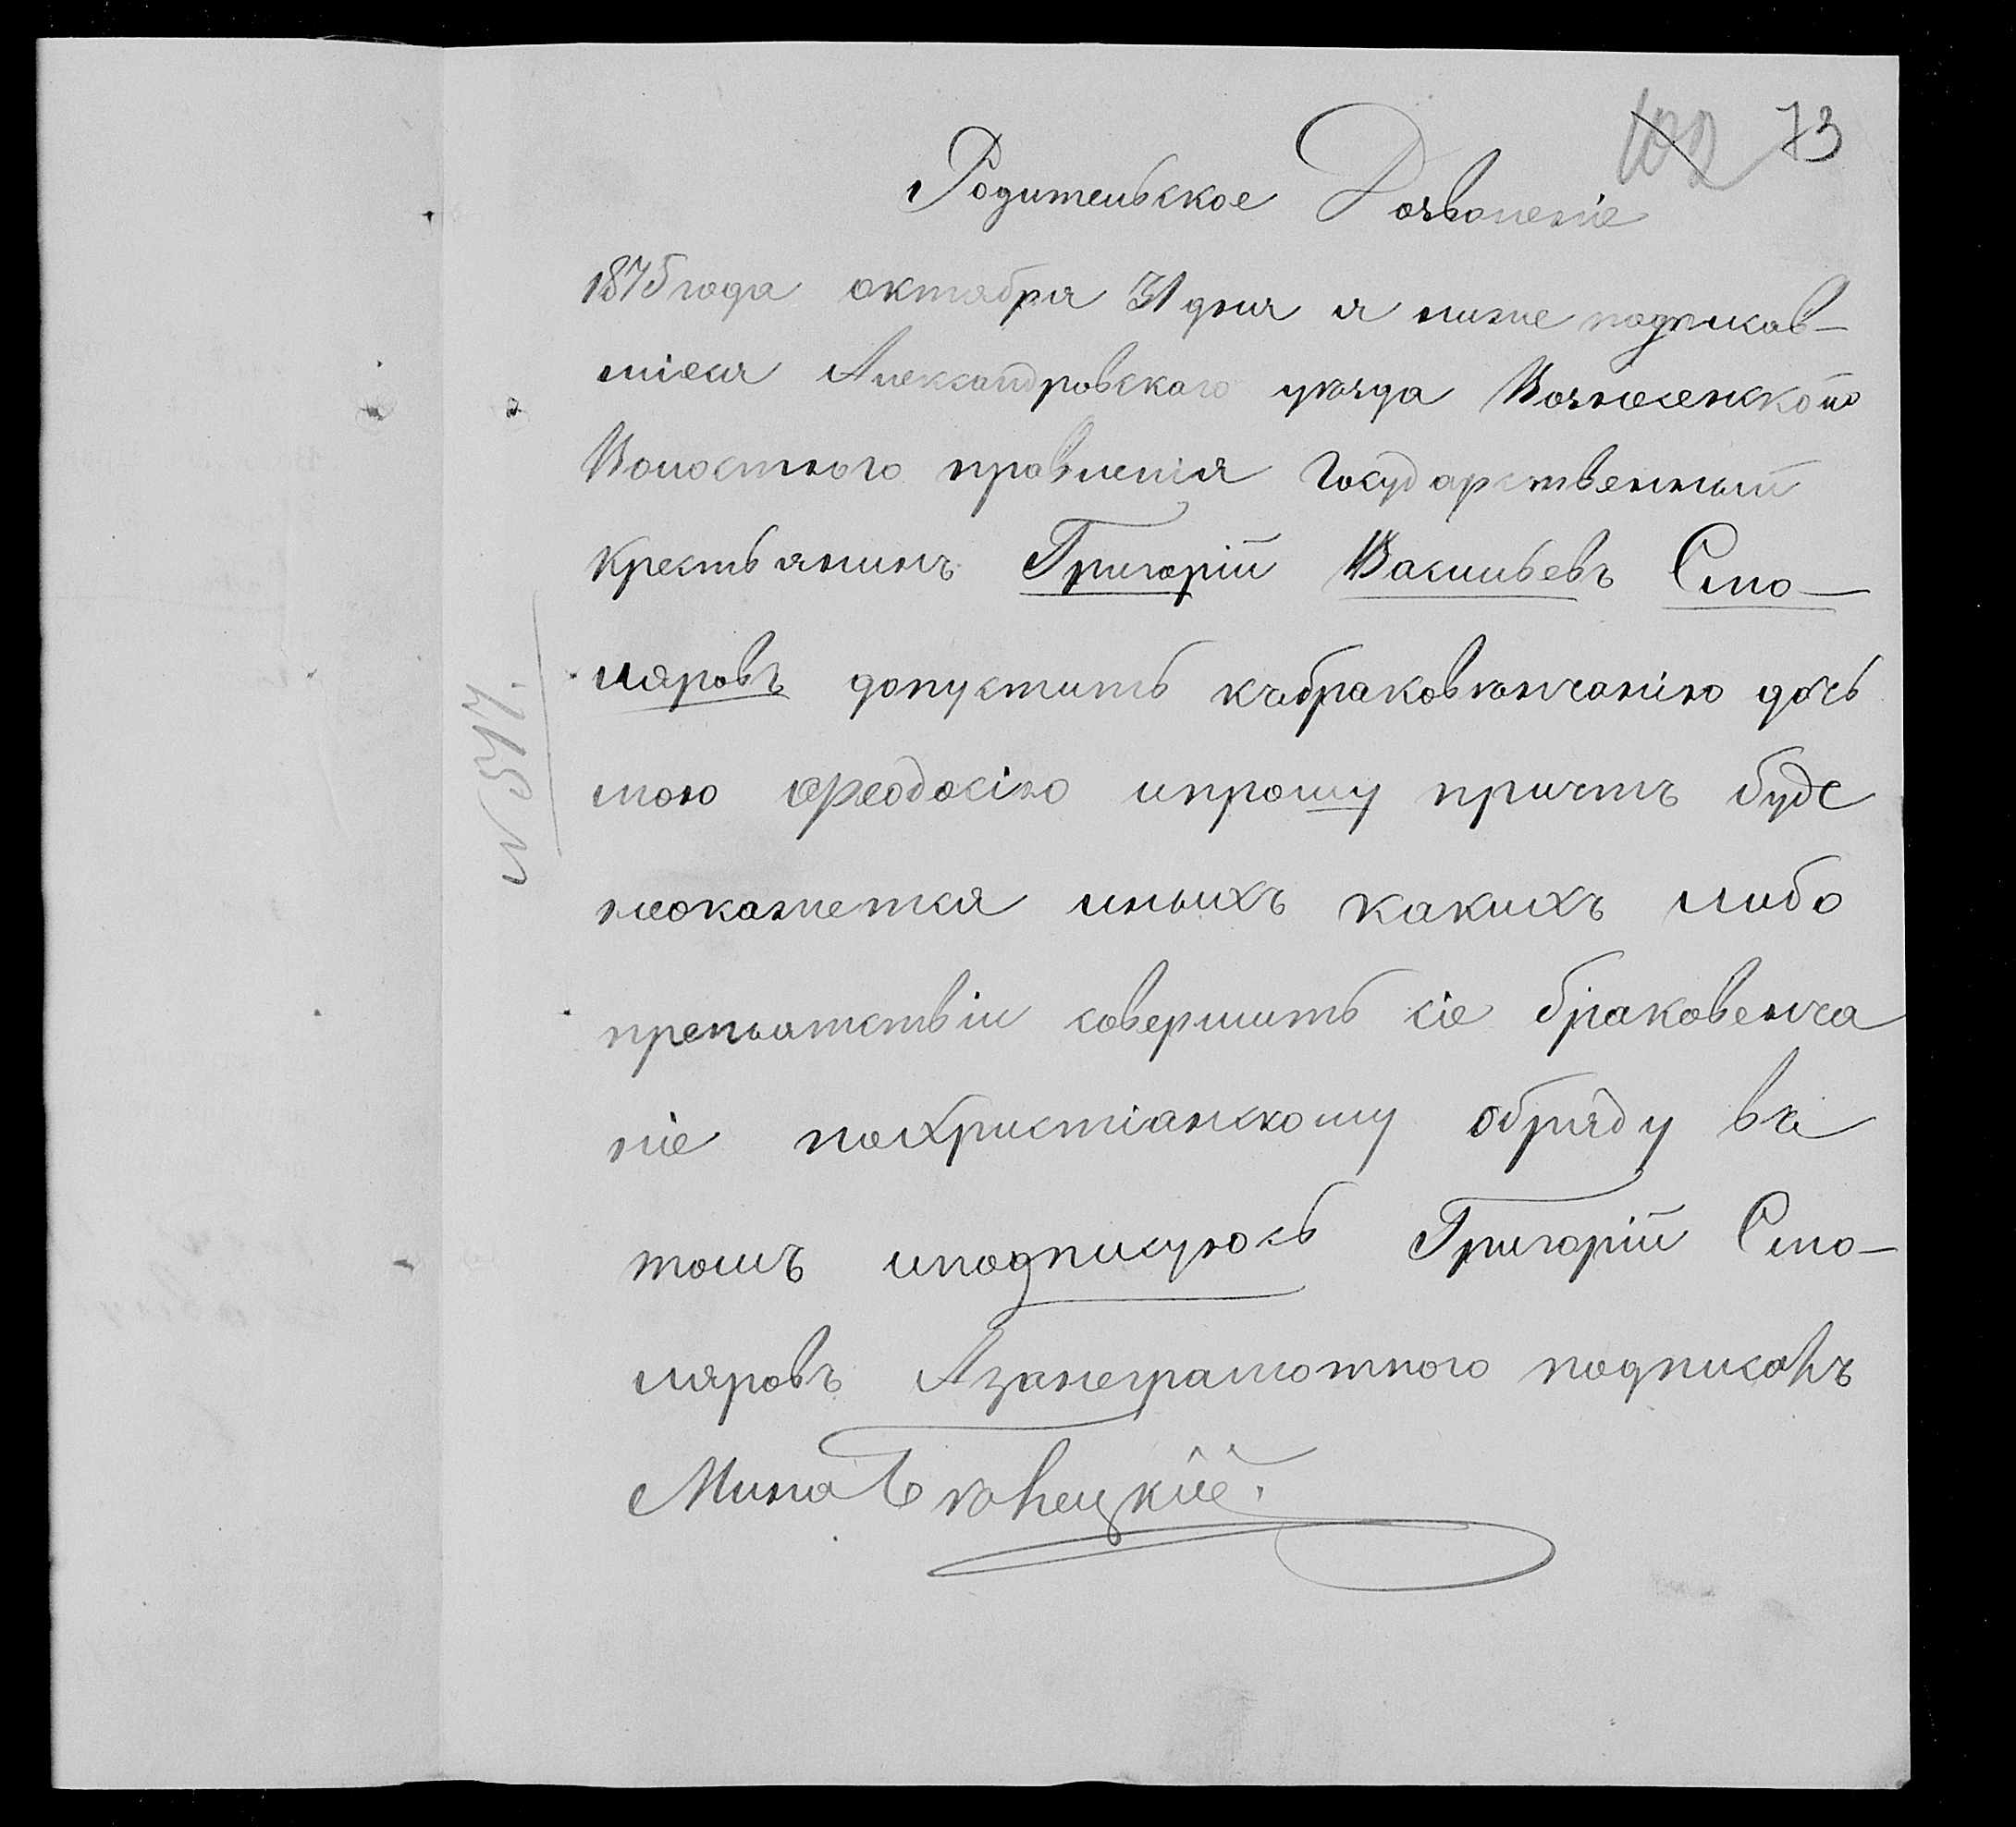 102 73
Родительское Дозволение
1875 года октября 31 дня я ниже подписав-
шіися Александровскаго уѣзда Вознесенской
Волостного правленія Государственный
крестьянинъ Григорій Васильевъ Сто-
ляровъ допустить къбраковѣнчанію дочь
мою Феодосію ипрошу причтъ буде
неокажется иныхъ какихъ либо
препятствіи совершить сіе браковенча
ніе похристіанскому обряду въ
томъ иподписуюсь Григорій Сто-
ляровъ Азанеграмотного подписалъ
Мина
№ 517.